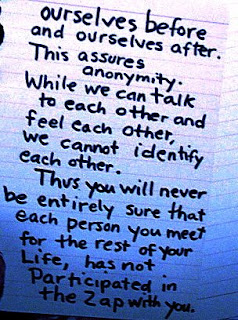 ourselves before
and ourselves after.
This assures
anonymity.
While we can talk
to each other and
feel each other,
we cannot identify
each other.
Thus you will never
be entirely sure that
each person you meet
for the rest of your
Life, has not
Participated in
the Zap with you.